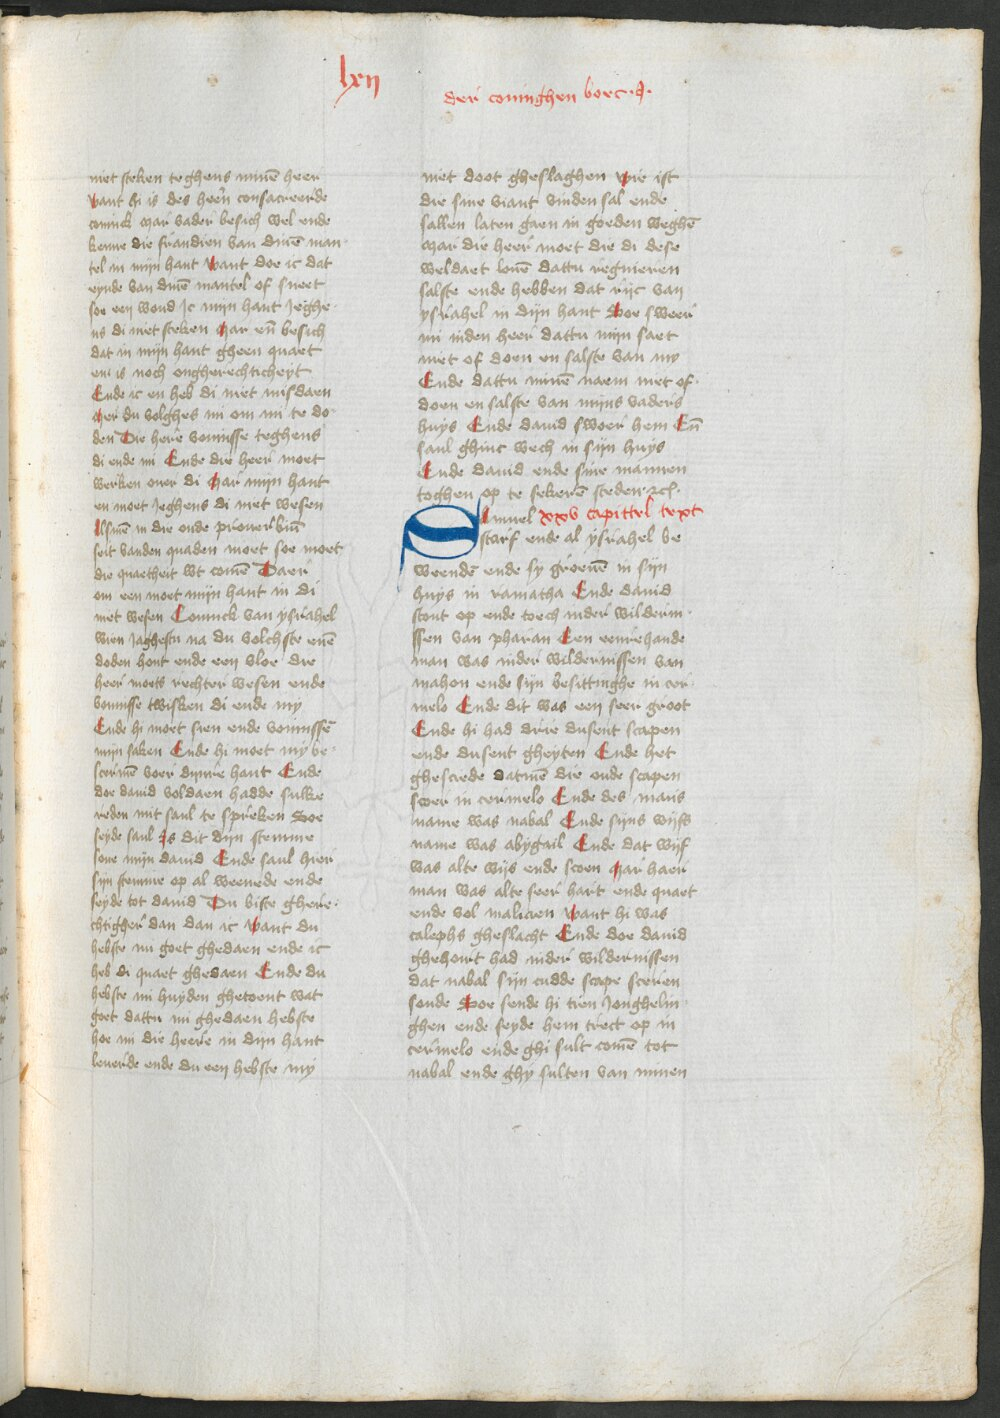 lxij
der coninghen boec .J.
niet steken teghens minē heer
want hi is des heerē consacreerde
coninck Mar vader besich wel ende
kenne die frandien van dinē man-
tel in mijn hant Want doe ic dat
eynde van dinē mantel of sneet
soe een woud Jc mijn hant Jeghe-
ns di niet steken Mar eñ besich
dat in mijn hant gheen quaet
en is noch ongherechticheyt
Ende ic en heb di niet misdaen
Mer du volghes mi om mi te do-
den Die here vonnisse teghens
di ende mi Ende die heer moet
werken over di Mar mijn hant
en moet Jeghens di niet wesen
Alsmē in die oude proverbiē
seit vanden quaden moet soe moet
die quaetheit wt comē Daer
om een moet mijn hant in di
niet wesen Coninck van ysrahel
wien Jaghestu na du volchste enē
doden hont ende een vloe die
heer moets rechter wesen ende
vonnisse twisken di ende my
Ende hi moet sien ende vonnissē
mijn saken Ende hi moet my be-
scermē voer dynre hant Ende
doe david voldaen hadde sulke
reden mit saul te spreken Soe
seyde saul Js dit dijn stemme
sone mijn david Ende saul hier
sijn stemme op al weenede ende
seyde tot david Du biste ghere-
chtigher dan dan ic Want du
hebste mi goet ghedaen ende ic
heb di quaet ghedaen Ende du
hebste mi huyden ghetoent wat
goet dattu mi ghedaen hebste
hoe mi die heere in dijn hant
leverde ende du een hebste my
niet doot gheslaghen Wie ist
die sine viant vinden sal ende
sallen laten gaen in goeden weghē
Mar die heer moet die di dese
weldaet lonē dattu regnieren
salste ende hebben dat rijc van
ysrahel in dijn hant Soe sweer
mi inden heer dattu mijn saet
niet of doen en salste van my
Ende dattu minē naem niet of-
doen en salste van mijns vaders
huys Ende david swoer hem Eñ
saul ghinc wech in sijn huys
Ende david ende sine mannen
toghen op te sekerē steden
Samuel xxv capittel text
starf ende al ysrahel be
weendē ende sy groevē in sijn
huys in ramatha Ende david
stont op ende toech inder wildern-
ssen van pharan Een eenrehande
man was inder wildernissen van
mahon ende sijn besittinghe in cer-
melo Ende dit was een seer groot
Ende hi had drie dusent scapen
ende dusent gheyten Ende het
ghesciede datmē die oude scapen
scoer in cermelo Ende des mans
name was nabal Ende sijns wijfs
name was abygail Ende dat wijf
was alte wijs ende scoen Mar haer
man was alte seer hart ende quaet
ende vol malicien Want hi was
calephs gheslacht Ende doe david
ghehoort had inder wildernissen
dat nabal sijn cudde scape sceren
soude Soe sende hi tien Jonghelin-
ghen ende seyde hem trect op in
cermelo ende ghi sult comē tot
nabal ende ghy sulten van minen